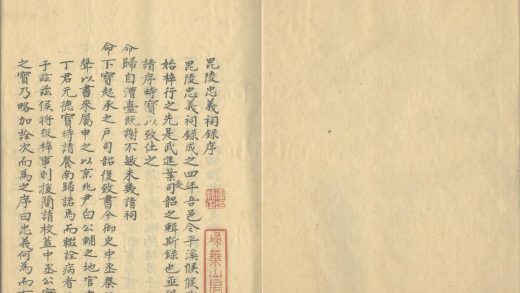 毘陵忠義祠錄序
毘陵忠義祠錄成之四年吾邑令平溪候候
始梓行之先是武進葉司韶之輯斯錄也亟
請序時寶以致仕之
命歸自漕臺既謝不敏未幾請祠
命下寶起承之戶司韶復致書今御史中丞蔡
聲以書來屬申之以京兆尹白公輔之地官
丁君元德寶時請養南歸諾焉而輟詮病者
于茲茲侯將從梓事則援簡請校蓋中丞公
之寶乃略加詮次而為之序曰忠義何為而
掃葉山房